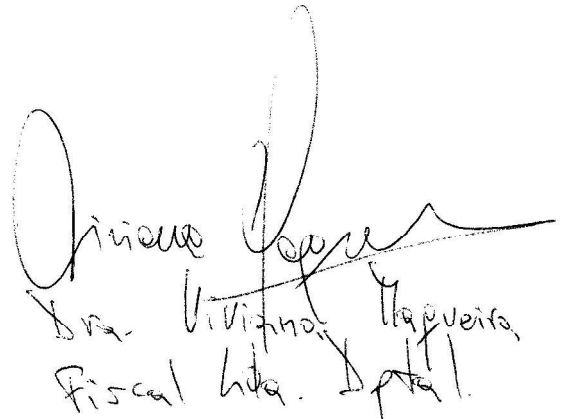 Viviana
Dra. Viviana Maqueira
Fiscal Lda. Dptal.